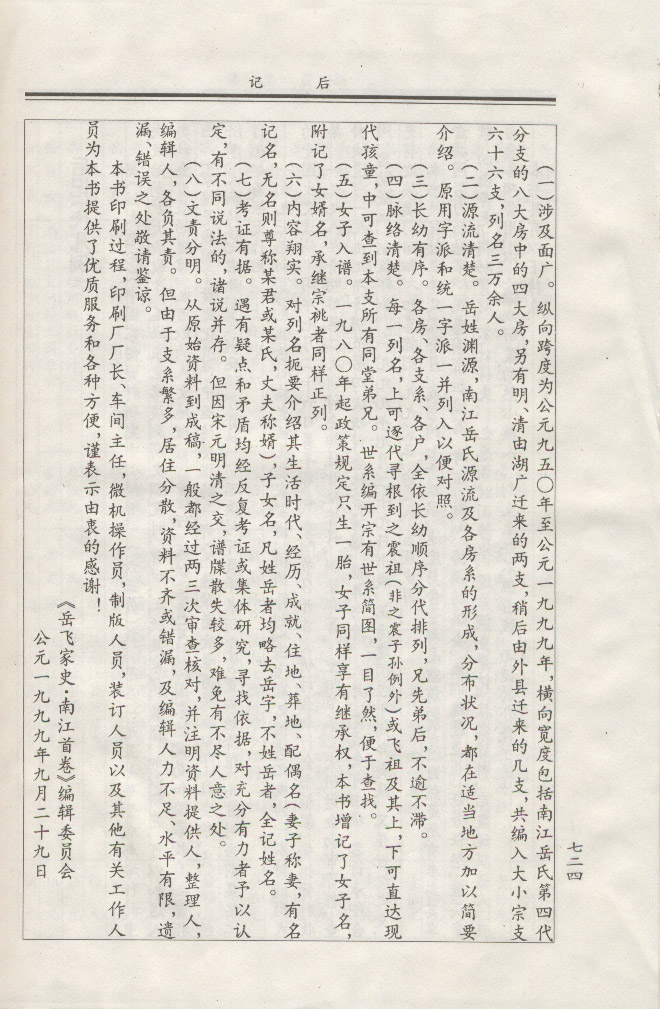 后记
(一)涉及面广。纵向跨度为公元九五〇年至公元一九九九年,横向宽度包括南江岳氏第四代
分支的八大房中的四大房,另有明、清由湖广迁来的两支,稍后由外县迁来的几支,共编入大小宗支
六十六支,列名三万余人。
(二)源流清楚。岳姓渊源,南江岳氏源流及各房系的形成,分布状况,都在适当地方加以简要
介绍。原用字派和统一字派一并列入以便对照。
(三)长幼有序。各房、各支系、各户,全依长幼顺序分代排列,兄先弟后,不逾不滞。
(四)脉络清楚。每一列名,上可逐代寻根到之震祖(非之震子孙例外)或飞祖及其上,下可直达现
代孩童,中可查到本支所有同堂弟兄。世系编开宗有世系简图,一目了然,便于查找。
(五)女子入谱。一九八〇年起政策规定只生一胎,女子同样享有继承权,本书增记了女子名,
附记了女婿名,承继宗祧者同样正列。
(六)内容翔实。对列名扼要介绍其生活时代、经历、成就、住地、葬地、配偶名(妻子称妻,有名
记名,无名则尊称某君或某氏,丈夫称婿),子女名,凡姓岳者均略去岳字,不姓岳者,全记姓名。
(七)考证有据。遇有疑点和矛盾均经反复考证或集体研究,寻找依据,对充分有力者予以认
定,有不同说法的,诸说并存。但因宋元明清之交,谱牒散失较多,难免有不尽人意之处。
(八)文责分明。从原始资料到成稿,一般都经过两三次审查核对,并注明资料提供人,整理人,
编辑人,各负其责。但由于支系繁多,居住分散,资料不齐或错漏,及编辑人力不足、水平有限,遗
漏、错误之处敬请鉴谅。
本书印刷过程,印刷厂厂长、车间主任,微机操作员,制版人员,装订人员以及其他有关工作人
员为本书提供了优质服务和各种方便,谨表示由衷的感谢!
《岳飞家史·南江首卷》编辑委员会
公元一九九九年九月二十九日
七二四